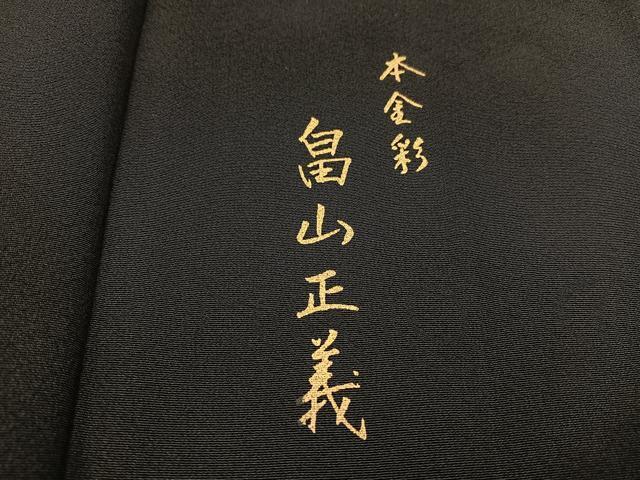 本金彩
畠山正義